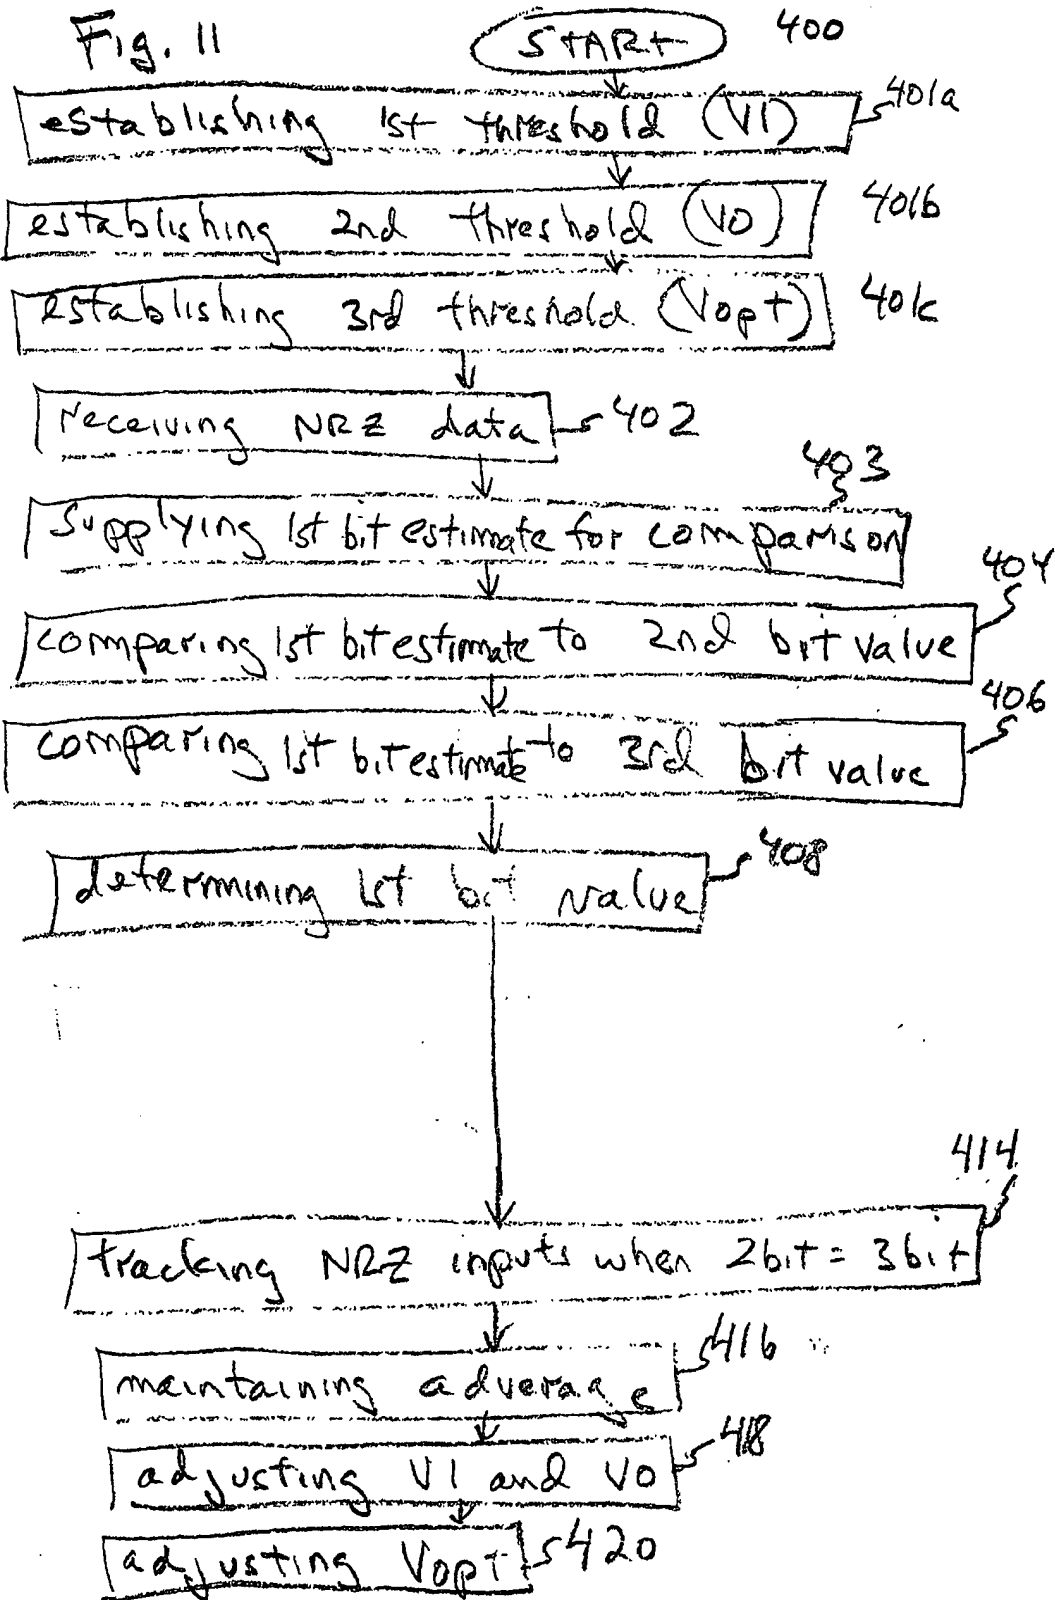 Fig. 11
START 400
establishing 1st threshold (V1) 401a
establishing 2nd threshold (V0) 401b
establishing 3rd threshold (Vopt) 401c
receiving NRZ data 402
403
supplying 1st bit estimate for comparison
404
comparing 1st bit estimate to 2nd bit value
406
comparing 1st bit estimate to 3rd bit value
408
determining 1st bit value
414
tracking NRZ inputs when 2bit = 3bit
416
maintaining adverage
418
adjusting V1 and V0
adjusting Vopt 420